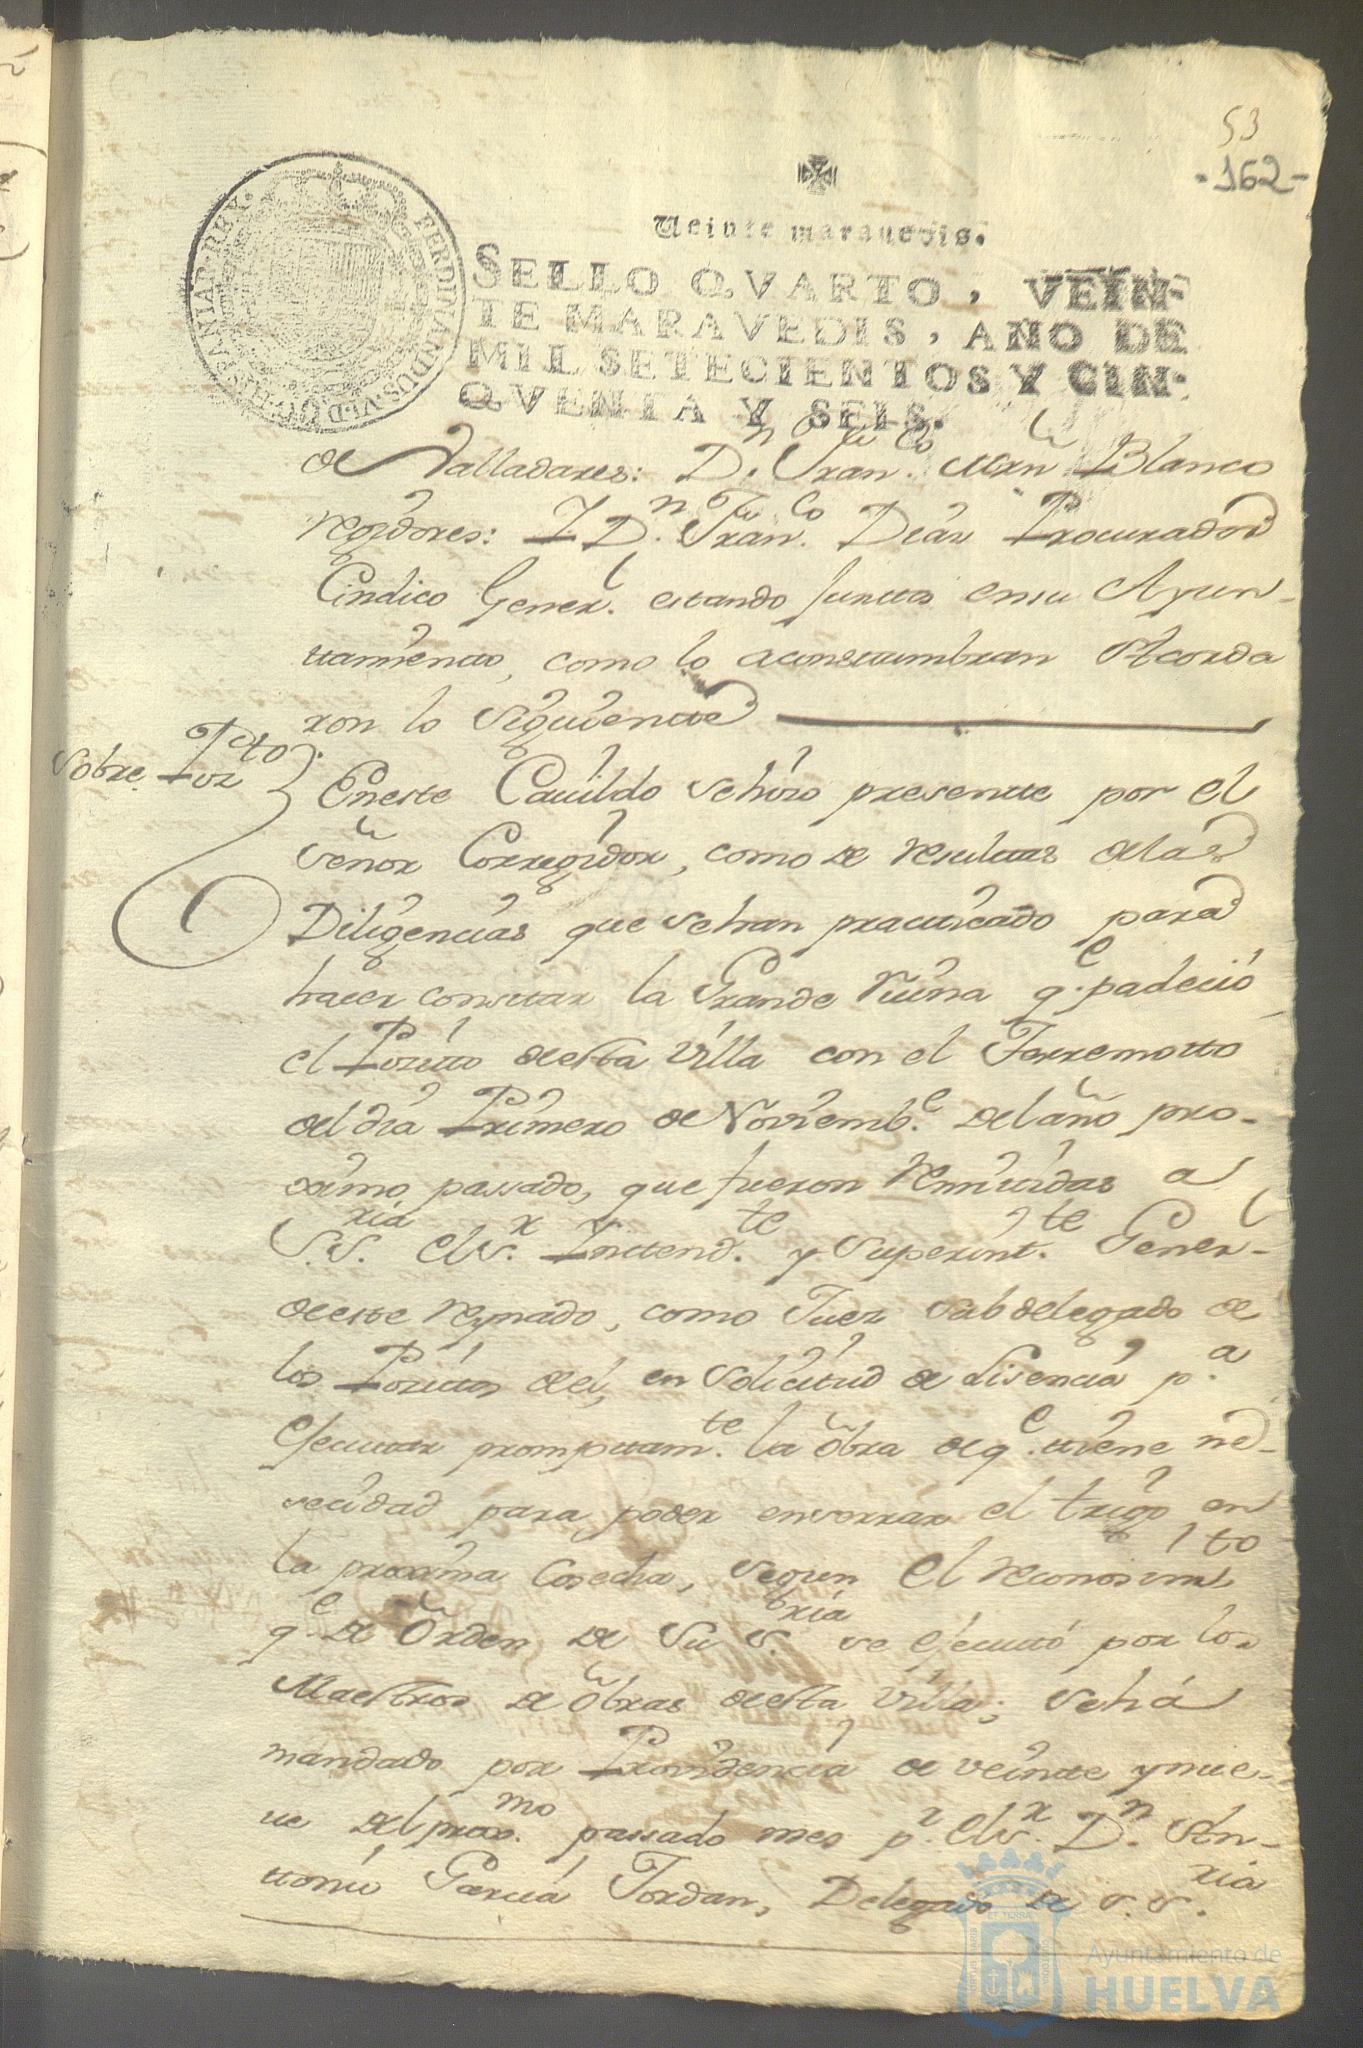 53
-162-
Veinte maravedis.
SELLO QVARTO, VEIN-
TE MARAVEDIS, AÑO DE
MIL SETECIENTOS Y CIN-
QVENTA Y SEIS.
FERDINANDUS·VI·D·G·HISPANIAR·REX·
de Valladares: D.n Fran.co Mrn Blanco
regidores: Y D.n Fran.co Diaz Procurador
Cindico Gener.l estando juntos ensu Ayun-
tamiento, como lo acostumbran Acorda
ron lo siguiente
Sobre Pto
En este Cavildo sehizo presente por el
señor Corregidor, como de resultas delas
Diligencias que sehan practicado para
hacer constar la Grande Ruina q.e padeció
el Posito deesta Villa con el Terremotto
del dia Primero de Noviemb.e del año pro-
ximo passado, que fueron remitidas a
S.S.ria el s.r Yntend.te y Superint.te Gener.l
deeste reynado, como Juez Subdelegado de
los Positos deel, en solicitud de Lisencia p.a
efecutar promptam.te la obra deq.e tiene ne-
secidad para poder enserrar el trigo en
la proxima Cosecha, segun el reconosim.to
q.e de Orden de Su S.ria se efecutó por los
Maestros de obras deesta Villa; sehá
mandado por Providencia de veinte y nue-
ve del prox.mo passado mes p.r el s.r D.n An-
tonio Garcia Jordan, Delegado de S.S.ria
Ayuntamiento de
HUELVA